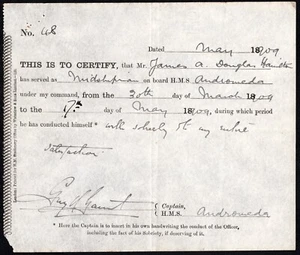 No. 48
Dated May 1909
THIS IS TO CERTIFY, that Mr. James A. Douglas
has served as Midshipman on board H.M.S. Andromeda
under my command, from the 20th day of March 1909
to the 17th day of May 1909, during which period
he has conducted himself* with sobriety & to my entire
satisfaction
Captain,
H.M.S. Andromeda
* Here the Captain is to insert in his own handwriting the conduct of the Officer,
including the fact of his Sobriety, if deserving of it.